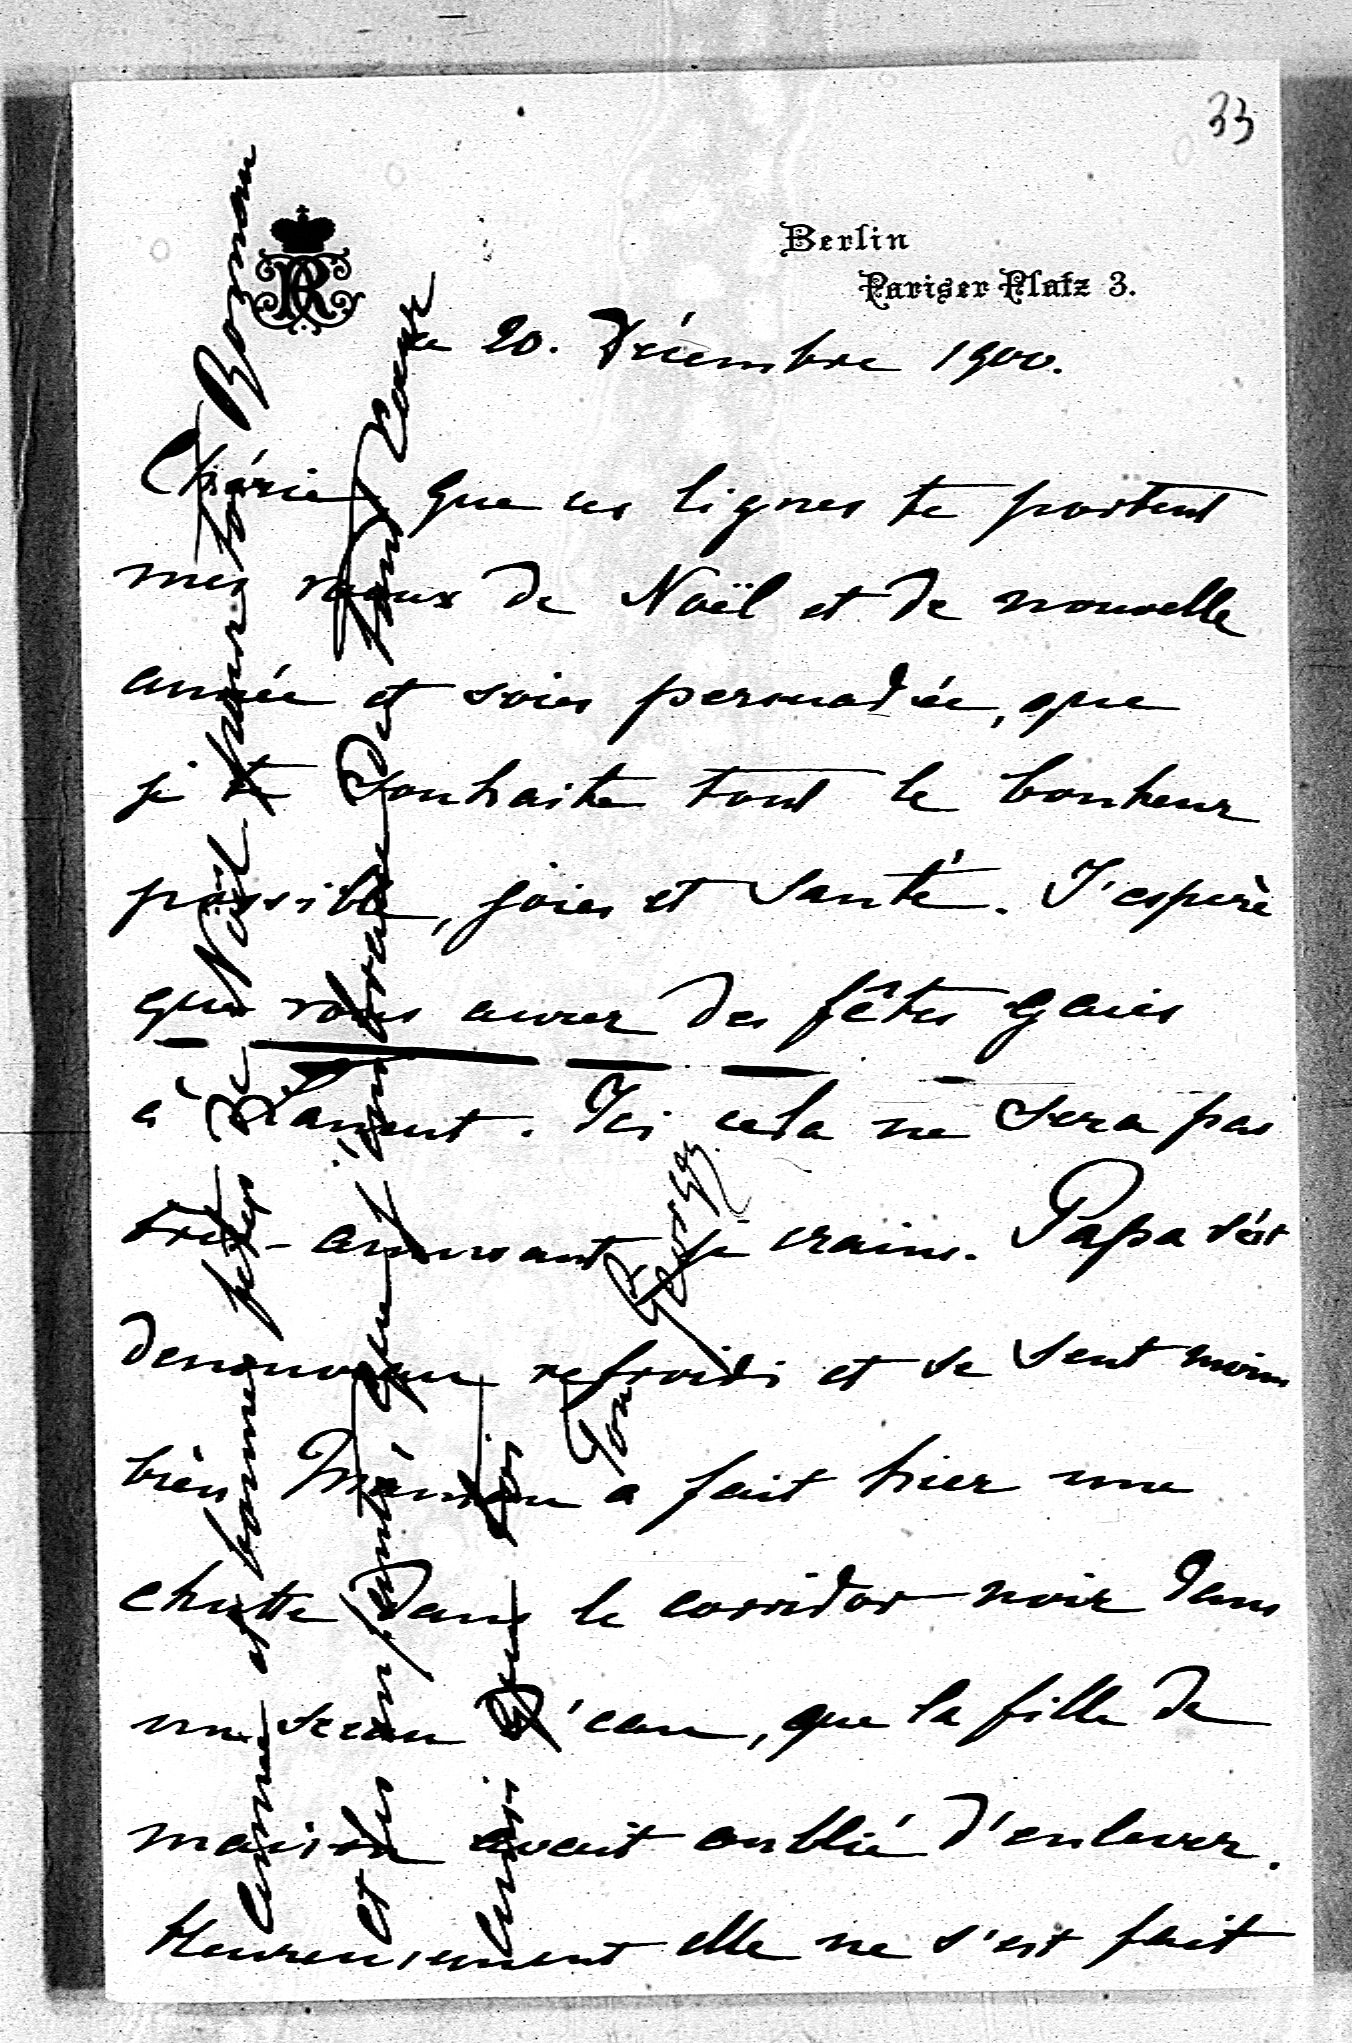 33
Berlin
Pariser Platz 3.
ce 20. Décembre 1900.
Chérie, que ces lignes te portent
mes vœux de Noël et de nouvelle
année et sois persuadée, que
je te souhaite tout le bonheur
possible, joies et santé. J'espère
que vous aurez des fêtes gaies
à Lancut. Ici cela ne sera pas
très-amusant je crains. Papa s'est
denouveau refroidi et se sent moins
bien Maman a fait hier une
chutte dans le corridor noir dans
un sceau d'eau, que la fille de
maison avait oublié d'enlever.
Heureusement elle ne s'est fait
et bonnes fêtes de Noël pour toi Roman
et les enfants que j'embrasse de tout cœur
ainsi que toi
Ton George